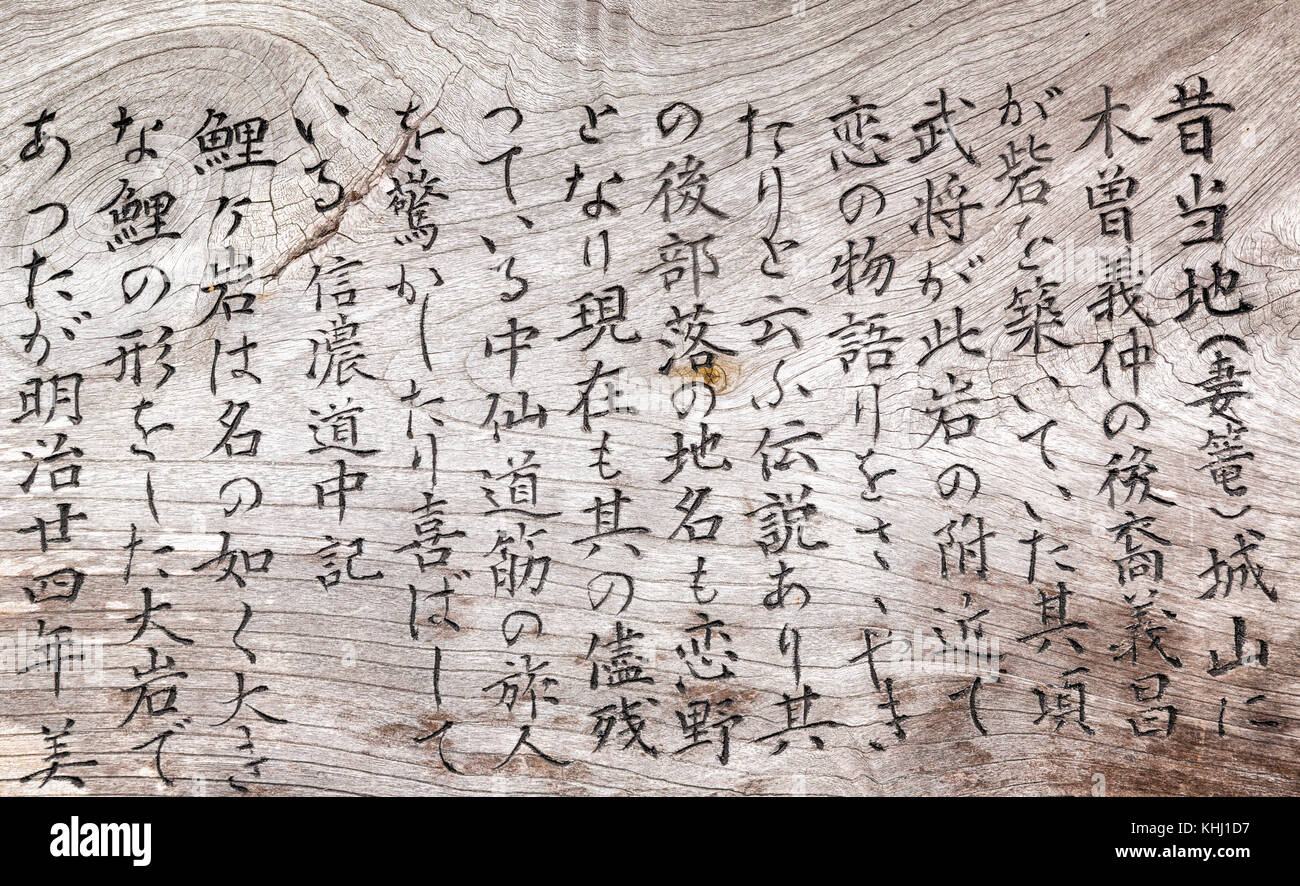 昔当地(妻篭)城山に
木曽義仲の後裔義昌
が砦を築いていた其頃
武将が此岩の附近で
恋の物語りをさゝやき
たりと云ふ伝説あり其
の後部落の地名も恋野
となり現在も其の儘残
っている中仙道筋の旅人
を驚かしたり喜ばして
いる 信濃道中記
鯉ケ岩は名の如く大き
な鯉の形をした大岩で
あつたが明治廿四年美
alamy stock photo
KHJ1D7
www.alamy.com